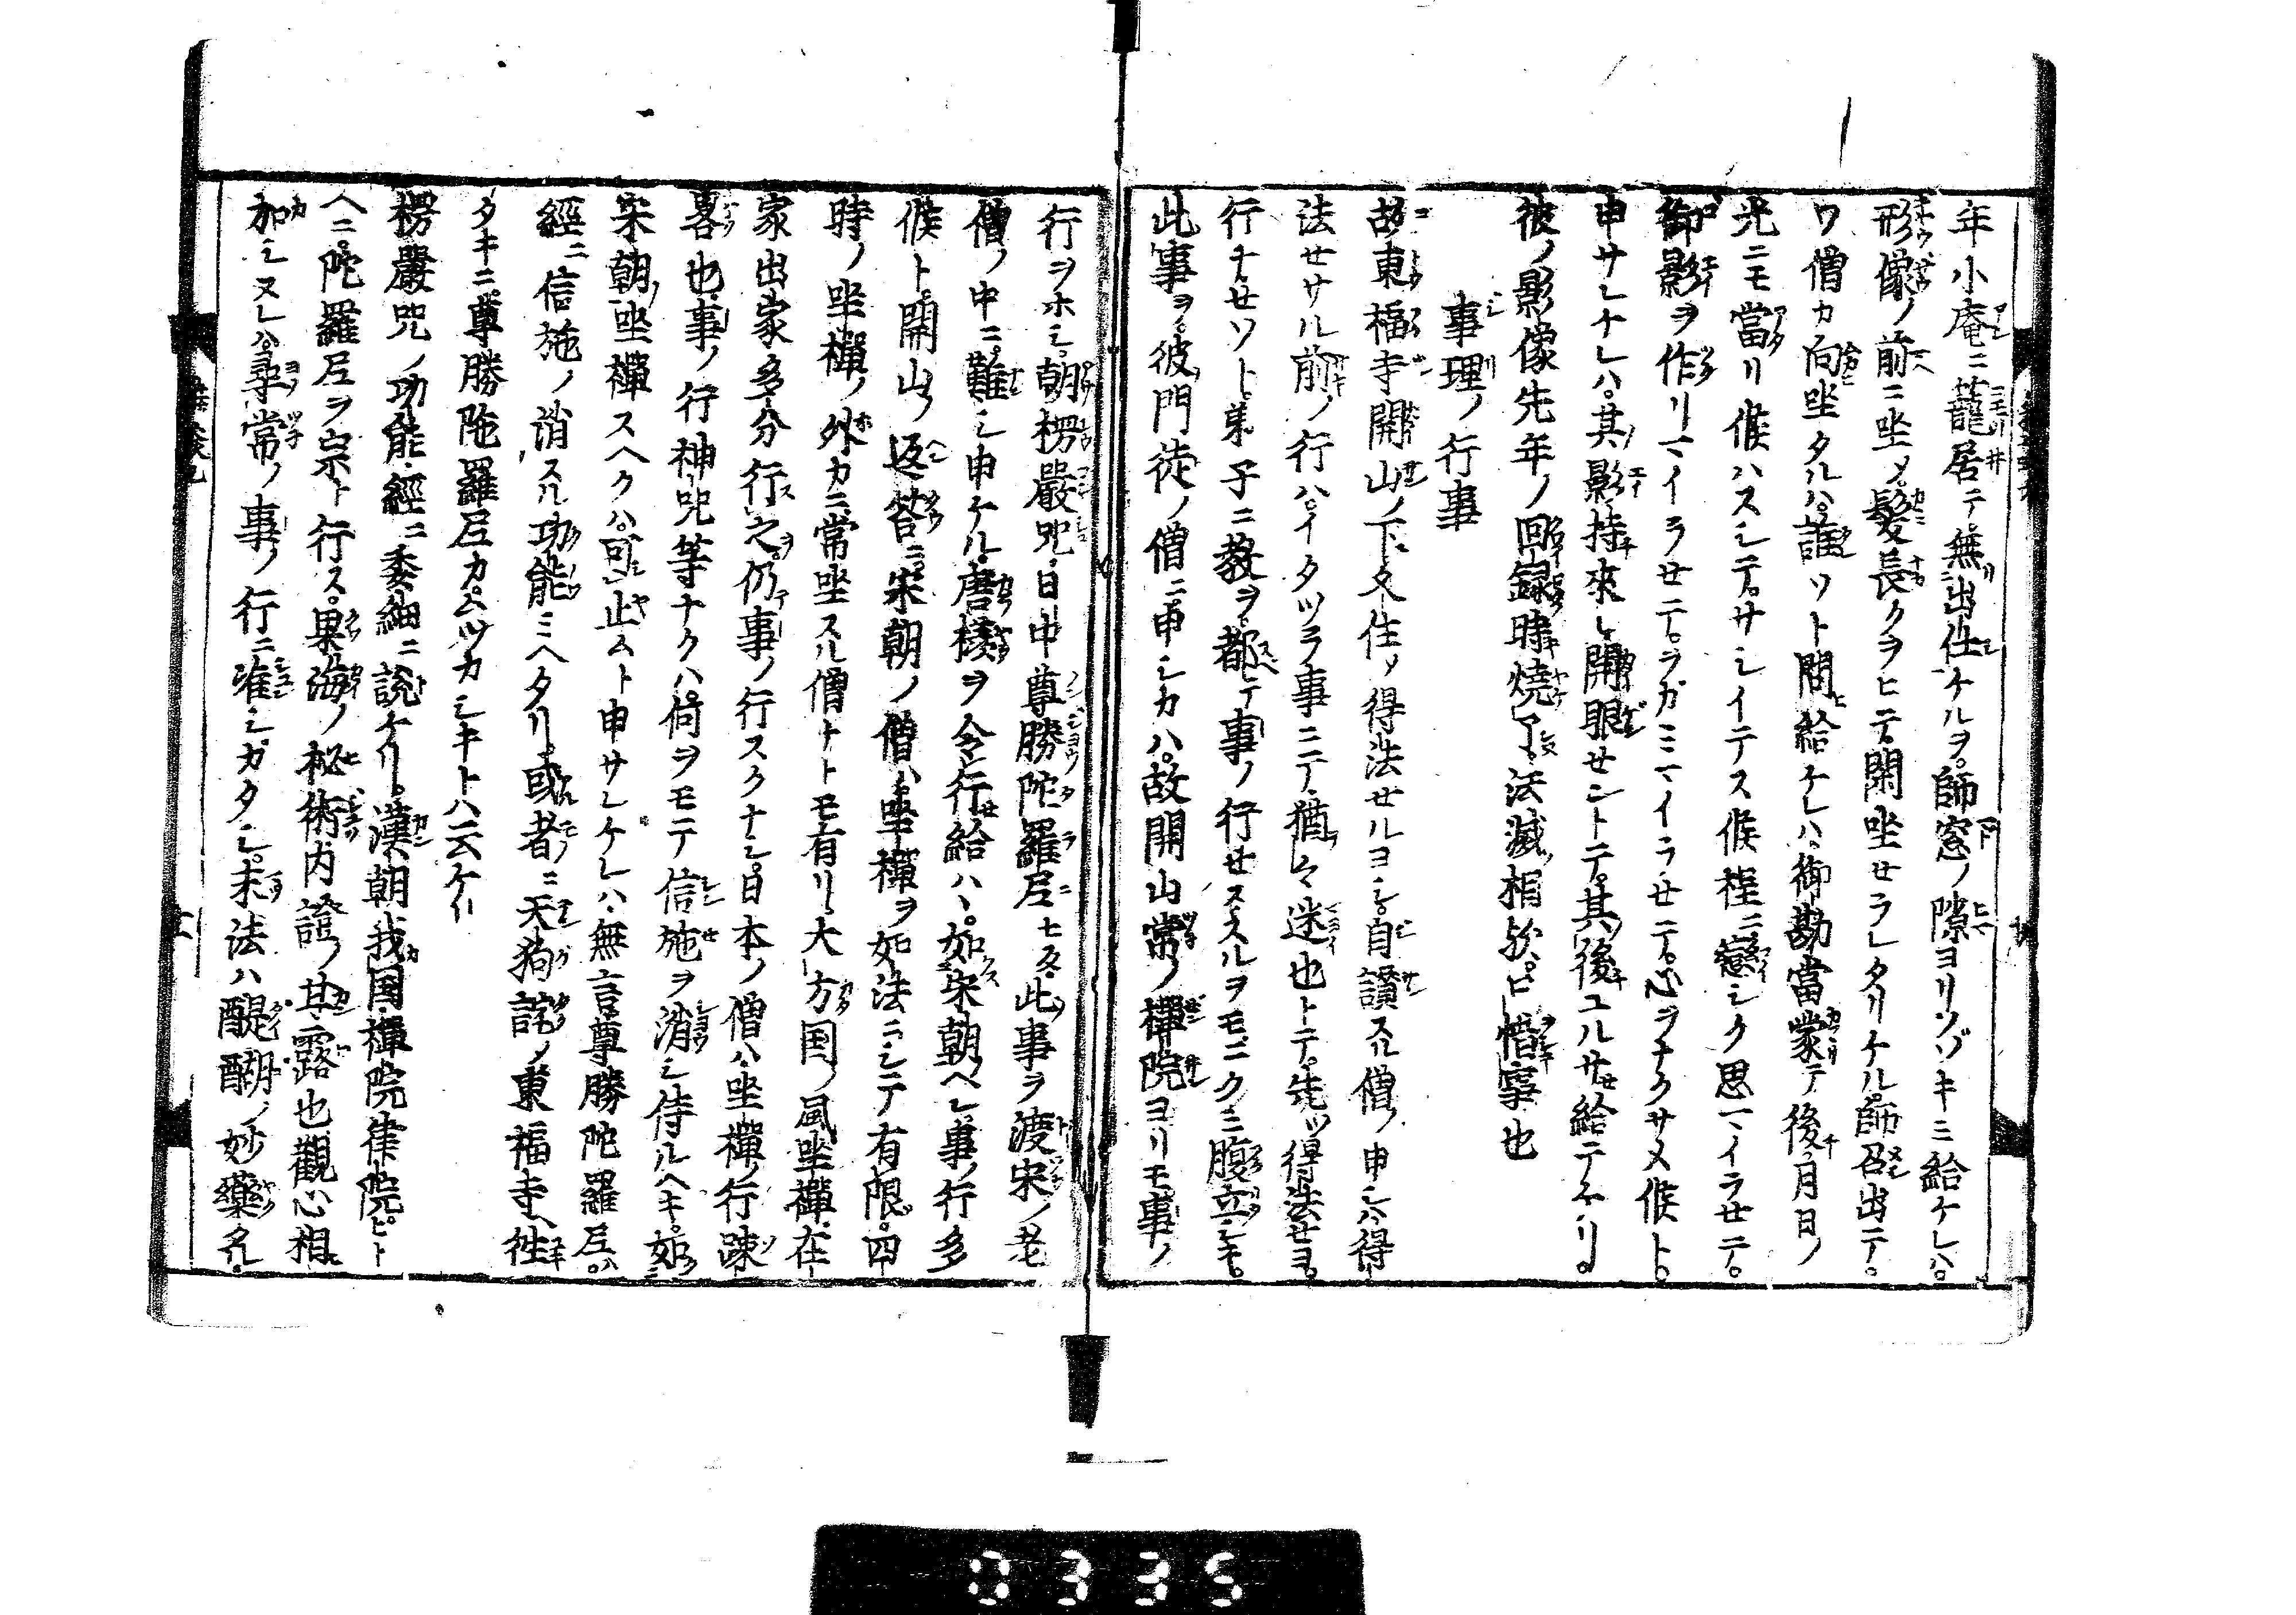 年小庵ニ籠居テ無出仕ケルヲ。師窓ノ隙ヨリノゾキミ給ケレハ。
形像ノ前ニ坐〆。髪長クヲヒテ。閑坐セラレタリケル。師召出テ。
ワ僧カ向坐タルハ。誰ソト問給ケレハ。御勘當蒙テ後、月日ノ
光ニモ當リ候ハスシテ。サシイテス候程ニ。戀シク思マイラセテ。
御影ヲ作リマイラセテ。ヲガミマイラセテ。心ヲナクサメ候ト。
申サレケレハ。其影持來レ開眼セントテ。其後ユルサセ給テケリ。
彼ノ影像先年ノ回録時焼了。法滅相歟。可惜事也
事理ノ行事
故東福寺開山ノ下ニ久住〆得法セルヨシ。自讃スル僧ノ申シハ得
法セサル前ノ行ハ。イタツラ事ニテ。猶々迷也トテ。先ツ得法セヨ。
行ナセソト。弟子ニ教ヲ。都テ事ノ行セス。スルヲモニクミ腹立シキ。
此事ヲ。彼門徒ノ僧ニ申シカハ。故開山常ノ禪院ヨリモ事ノ
行ヲホシ。朝楞嚴咒。日中尊勝陀羅尼七反。此事ヲ渡宋ノ老
僧ノ中ニ。難シ申ケル。唐様ヲ令行給ハヽ。如宋朝ヘシ事ノ行多
候ト。開山ノ返答ニ。宋朝ノ僧ハ。坐禪ヲ如法ニシテ有限。四
時ノ坐禪ノ外カニ。常坐スル僧ナトモ有リ。大方国ノ風坐禪。在
家出家多分行之。仍事ノ行スクナシ。日本ノ僧ハ。坐禪ノ行疎
畧也。事ノ行神咒等ナクハ。何ヲモテ信施ヲ消シ侍ルヘキ。如
宋朝坐禪スヘクハ。可止ムト申サレケレハ。無言尊勝陀羅尼ハ。
經ニ信施ノ消スル功能ミヘタリ。或者ニ天狗詫ノ東福寺ヘ徃
タキニ尊勝陀羅尼カ。ムツカシキトハ云ケル
楞嚴咒ノ功能。經ニ委細ニ説ケリ。漢朝我国禪院律院。ヒト
ヘニ。陀羅尼ヲ宗ト行ス。果海ノ秘術内證ノ甘露也觀心相
加シヌレハ。尋常ノ事ノ行ニ准シカタシ。末法ハ醍醐ノ妙藥タル